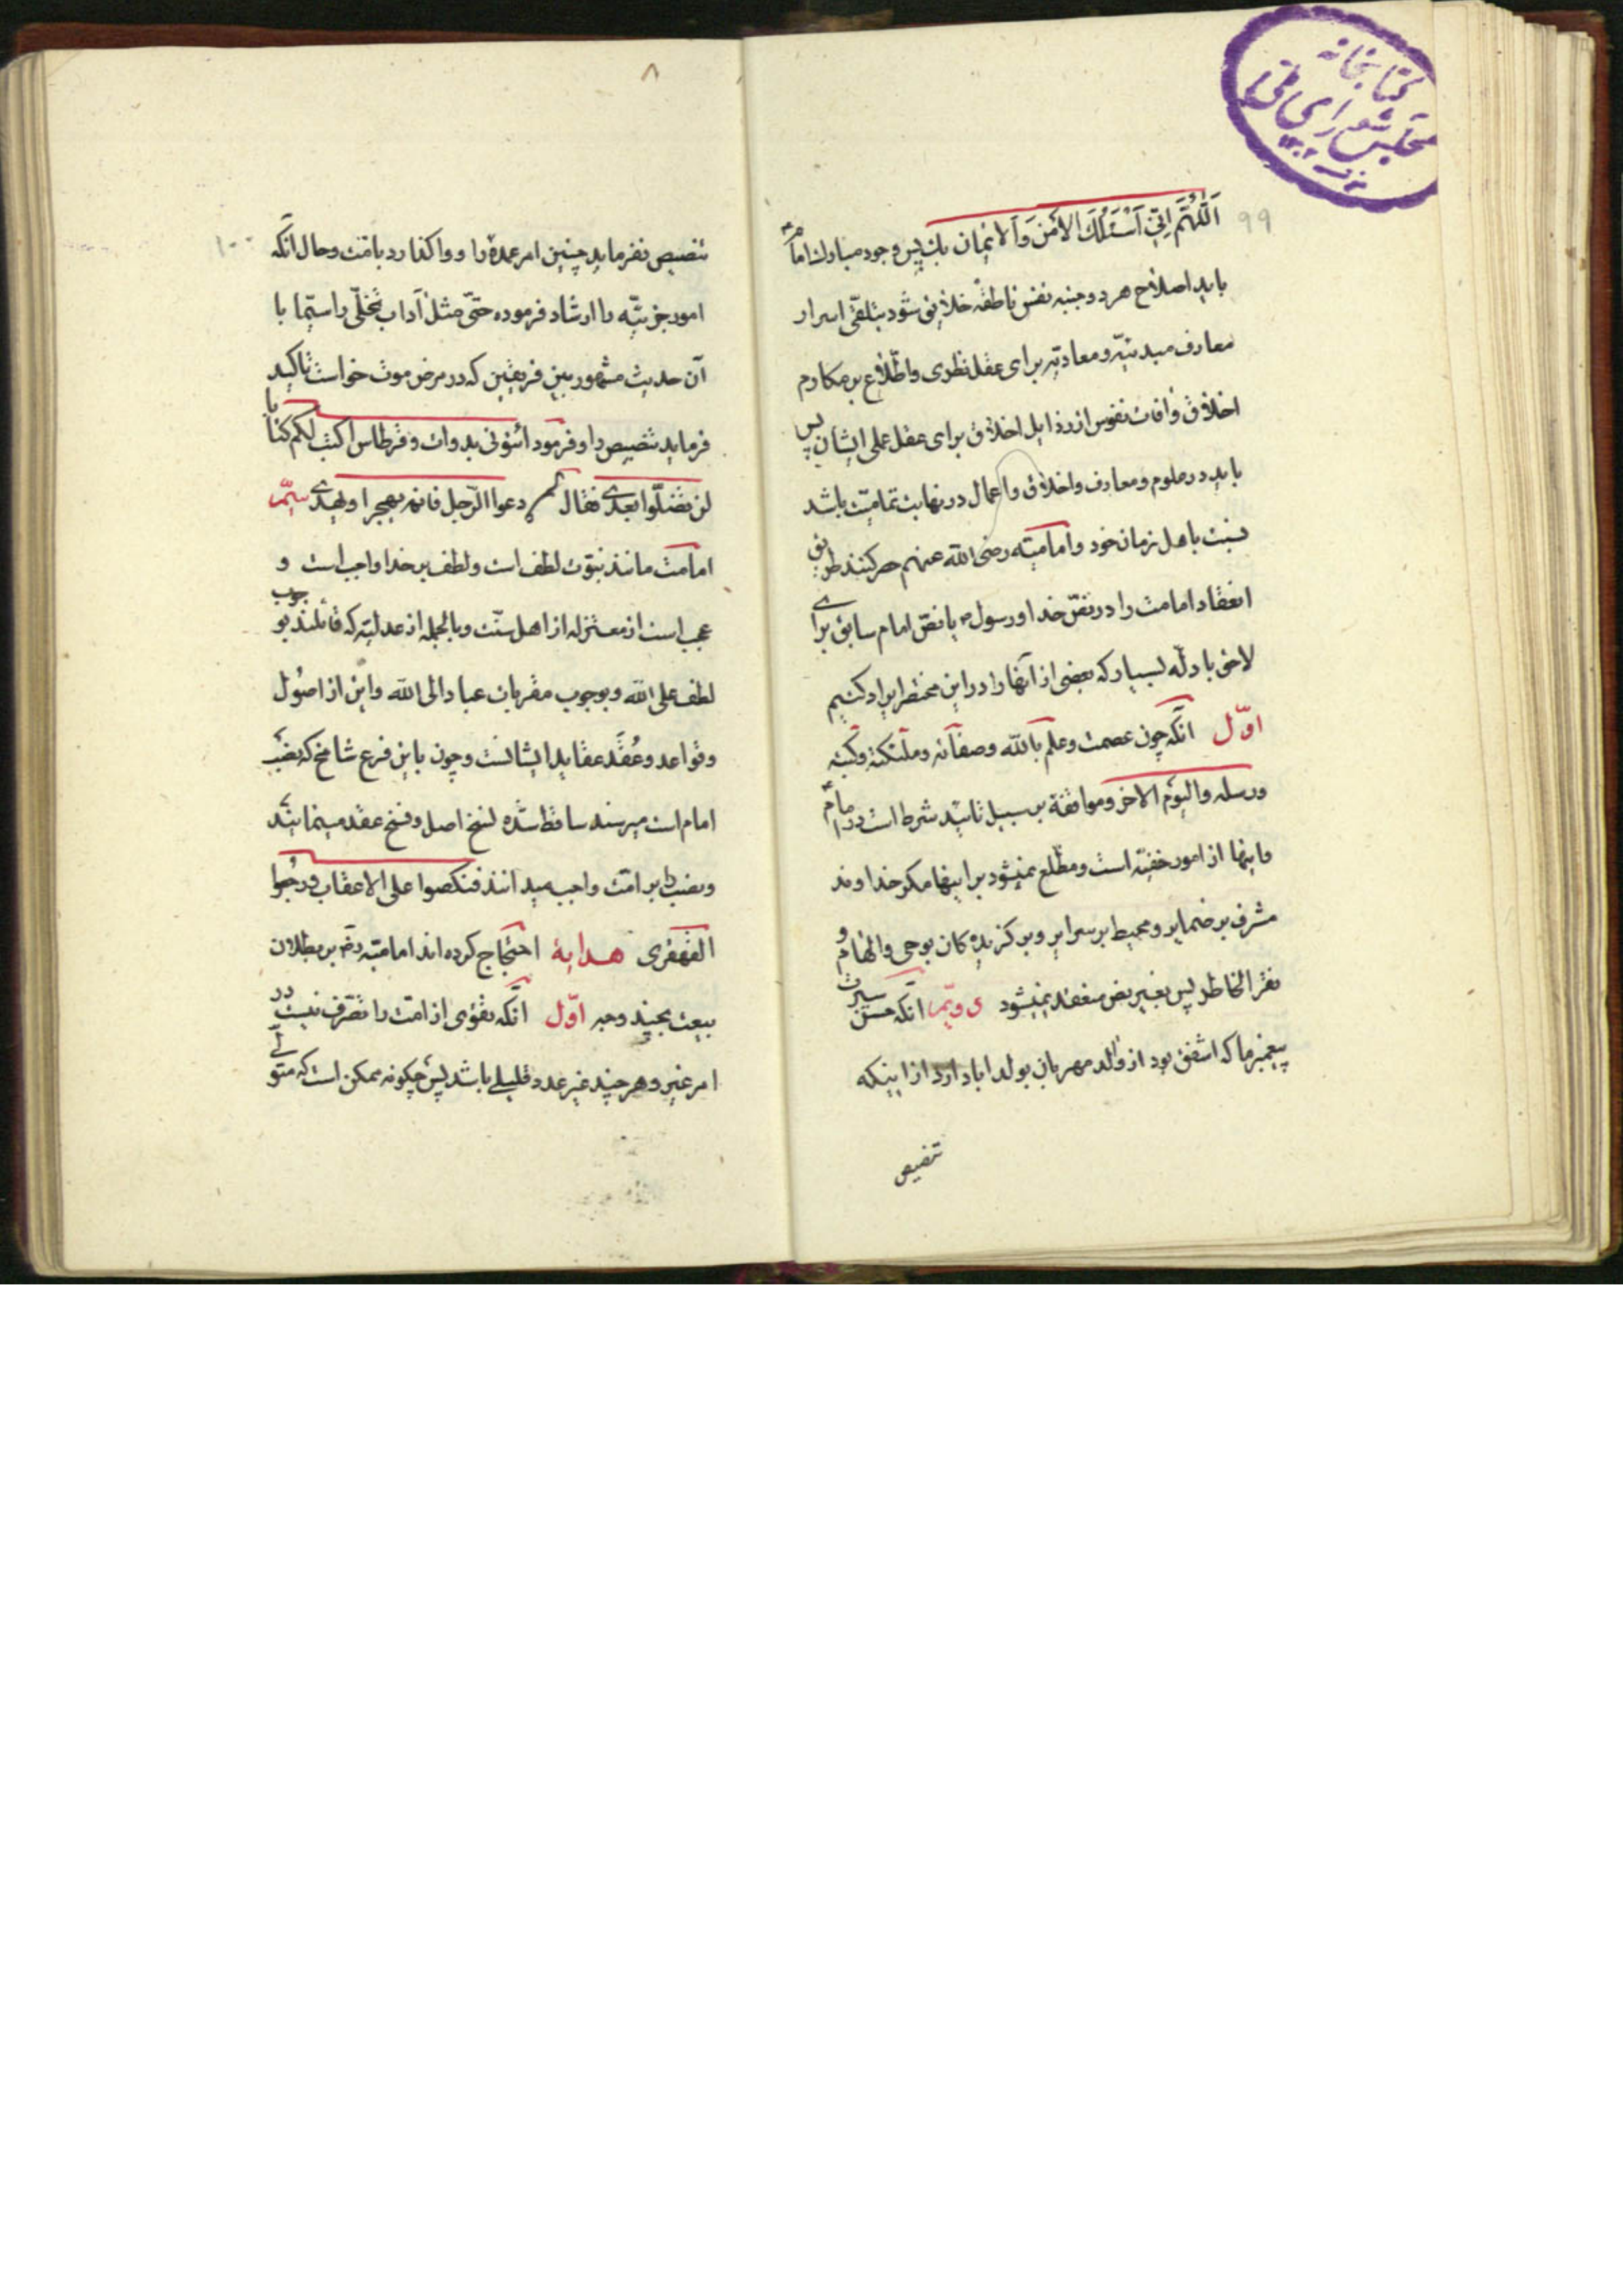 کتابخانه
مجلس شورای ملی
۹۹
اَللّهُمَّ اِنّی اَسْئَلُکَ الاَمْنَ وَالایمانَ بِکَ پس وجود مبارک امام
باید اصلاح هر دو جنبه نفس ناطقهٔ خلایق شود بتلقّی اسرار
معارف مبدئیّه و معادیّه برای عقل نظری و اطّلاع بر مکارم
اخلاق و افات نفوس از رذایل اخلاق برای عقل عملی ایشان پس
باید در علوم و معارف و اخلاق و اعمال در نهایت تمامیّت باشد
نسبت باهل زمان خود و امامیّه رضی الله عنهم حصر کنند طریق
انعقاد امامت را در نصّ خدا و رسول ص یا نصّ امام سابق برای
لاحق بادلّه بسیار که بعضی از انها را در این مختصر ایراد کنیم
اوّل انکه چون عصمت و علم بالله و صفاته و ملئکته و کتبه
و رسله والیوم الاخر و موافقة بر سبیل تائید شرط است در امام
و اینها از امور خفیّه است و مطّلع نمیشود بر اینها مکر خداوند
مشرف بر ضمایر و محیط بر سرایر و برکزیده کان بوحی و الهام و
نقر الخاطر پس بغیر نص منعقد نمیشود دویّم انکه حسن سیرت
پیغمبر ما که اشفق بود از والد مهربان بولد ابا دارد از اینکه
تنصیص
۸
۱۰۰
تنصیص نفرماید چنین امر عمده را و واکذارد بامّت و حال انکه
امور جزئیّه را ارشاد فرموده حتّی مثل آداب تخلّی را سیّما با
آن حدیث مشهور بین فریقین که در مرض موت خواست تاکید
فرماید تنصیص را و فرمود ائتونی بدوات و قرطاس اکتب لکم کتابا
لن تضلّوا بعدی فقال عمر دعوا الرّجل فانه یهجر او یهذی سیّم
امامت مانند نبوّت لطف است و لطف بر خدا واجب است و
عجب است از معتزله از اهل سنّت و بالجمله از عدلیّه که قائلند بوجوب
لطف علی الله و بوجوب مقربات عباد الی الله و این از اصول
و قواعد و عُقَد عقاید ایشانست و چون باین فرع شامخ که نصب
امام است میرسند ساقط شده نسخ اصل و فسخ عقد مینمایند
و نصب را بر امّت واجب میدانند فنکصوا علی الاعقاب و رجعوا
القهقری هدایة احتجاج کرده اند امامیّه رض بر بطلان
بیعت بچند وجه اوّل انکه نفوس از امت را تصرّف نیست در
امر غیر و هر چند غیر عدد قلیلی باشد پس چکونه ممکن است که متولّی